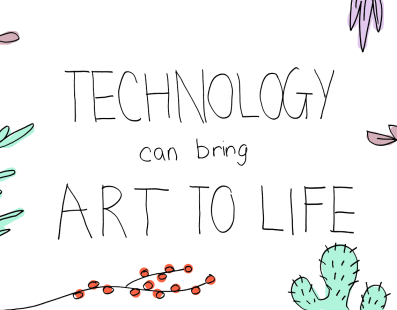 TECHNOLOGY
can bring
ART TO LIFE